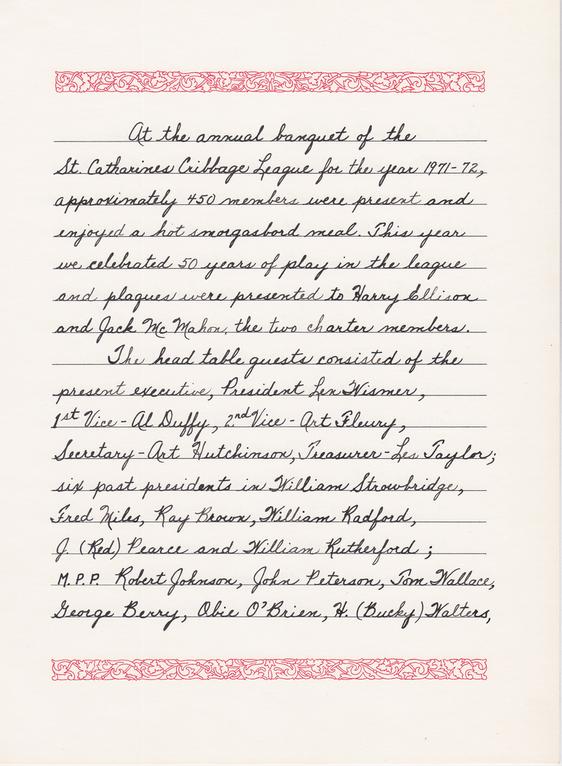 At the annual banquet of the
St. Catharines Cribbage League for the year 1971-72,
approximately 450 members were present and
enjoyed a hot smorgasbord meal. This year
we celebrated 50 years of play in the league
and plaques were presented to Harry Ellison
and Jack Mc Mahon, the two charter members.
The head table guests consisted of the
present executive, President Len Wismer,
1st Vice - Al Duffy, 2nd Vice - Art Fleury,
Secretary - Art Hutchinson, Treasurer - Les Taylor;
six past presidents in William Strowbridge,
Fred Miles, Ray Brown, William Radford,
J. (Red) Pearce and William Rutherford ;
M.P.P. Robert Johnson, John Peterson, Tom Wallace,
George Berry, Obie O'Brien, H. (Bucky) Walters,